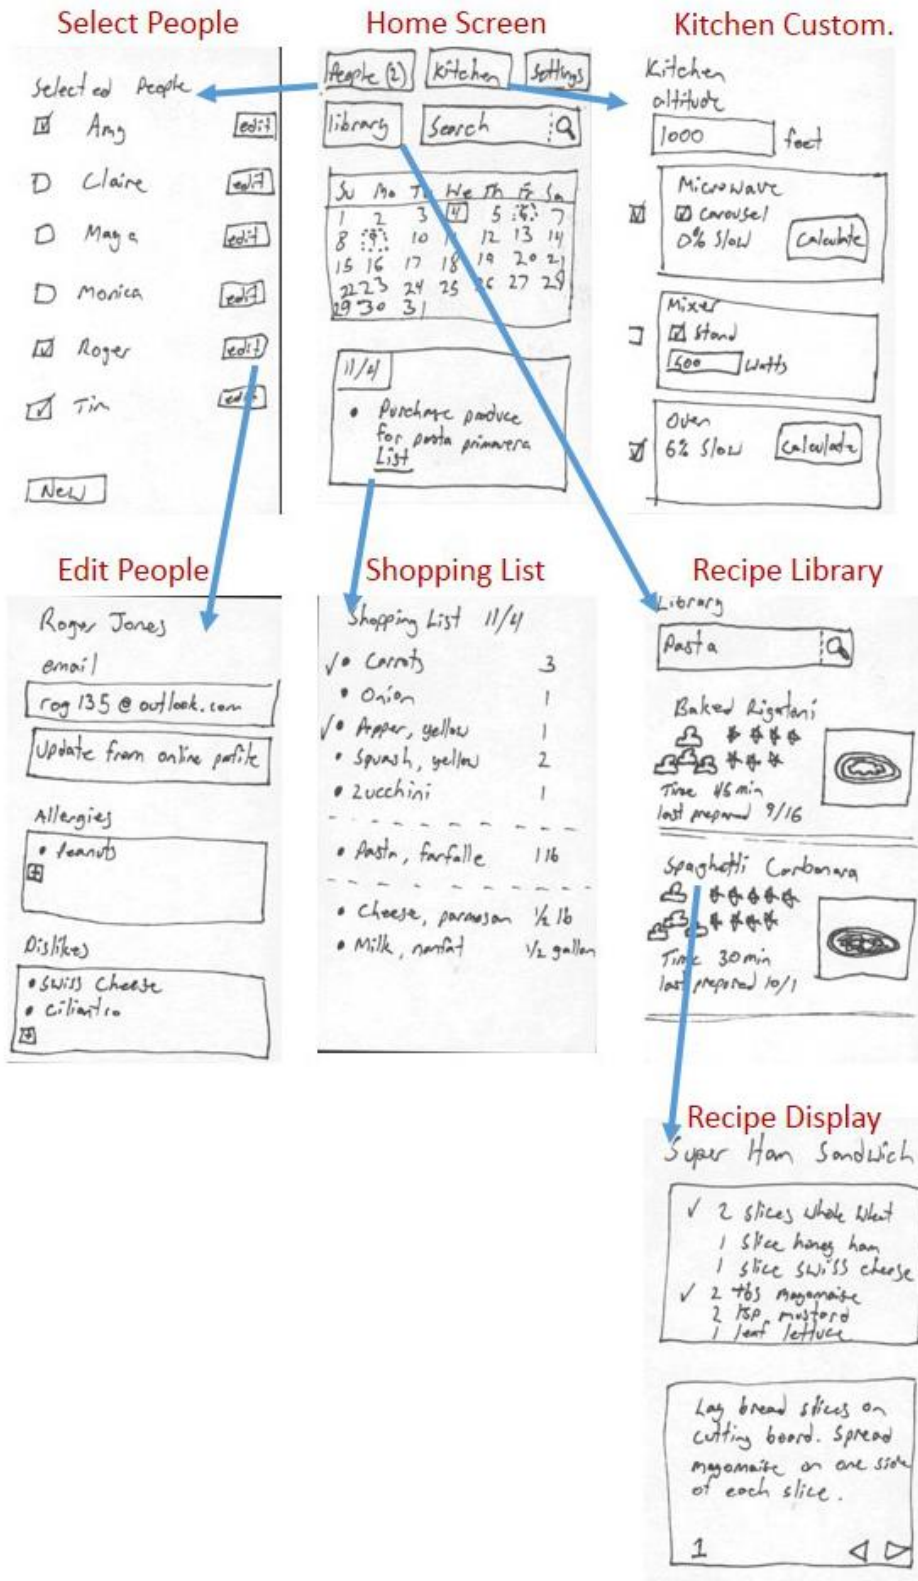 Select People
Selected People
Amy edit
Claire edit
Maya edit
Monica edit
Roger edit
Tim edit
New
Home Screen
People (2) Kitchen Settings
library Search
Su Mo Tu We Th Fr Sa
1 2 3 4 5 6 7
8 9 10 11 12 13 14
15 16 17 18 19 20 21
22 23 24 25 26 27 28
29 30 31
11/4
• Purchase produce
for pasta primavera
List
Kitchen Custom.
Kitchen
altitude
1000 feet
Microwave
carousel
0% Slow Calculate
Mixer
Stand
Watts
Oven
6% Slow Calculate
Edit People
Roger Jones
email
rog135@outlook.com
Update from online profile
Allergies
• Peanuts
+
Dislikes
• Swiss Cheese
• cilantro
+
Shopping List
Shopping List 11/4
✓• Carrots 3
• Onion 1
✓• Pepper, yellow 1
• Squash, yellow 2
• Zucchini 1
• Pasta, farfalle 1 lb
• Cheese, parmesan ½ lb
• Milk, nonfat ½ gallon
Recipe Library
Library
Pasta
Baked Rigatoni
Time 45 min
last prepared 9/16
Spaghetti Carbonara
Time 30 min
last prepared 10/1
Recipe Display
Super Ham Sandwich
✓ 2 slices whole wheat
1 slice honey ham
1 slice swiss cheese
✓ 2 tbs mayonnaise
2 tsp mustard
1 leaf lettuce
Lay bread slices on
cutting board. Spread
mayonnaise on one side
of each slice.
1